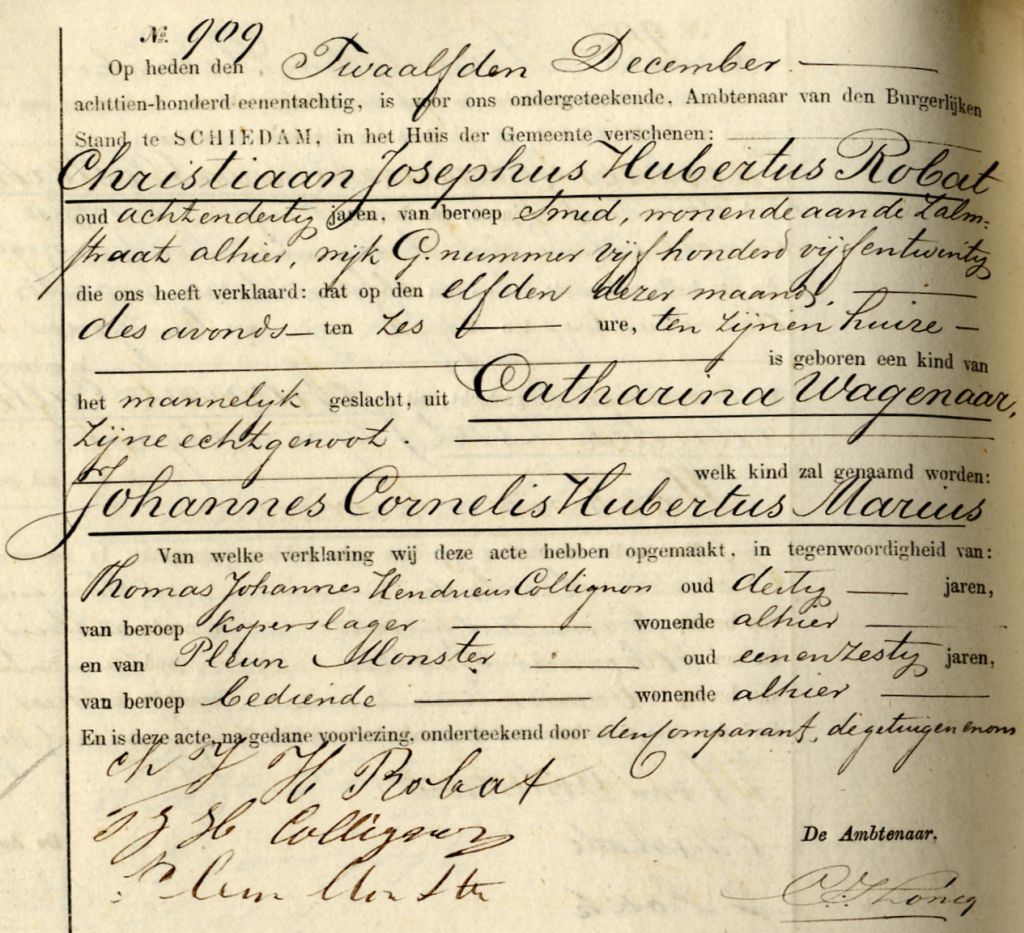 No. 909
Op heden den Twaalfden December
achttien-honderd eenentachtig, is voor ons ondergeteekende, Ambtenaar van den Burgerlijken
Stand te SCHIEDAM, in het Huis der Gemeente verschenen:
Christiaan Josephus Hubertus Robat
oud achtendertig jaren, van beroep Smid, wonende aan de Zalm=
straat alhier, wijk G. nummer vijfhonderd vijfentwintig
die ons heeft verklaard: dat op den elfden dezer maand,
des avonds ten zes ure, ten zijnen huize
is geboren een kind van
het mannelijk geslacht, uit Catharina Wagenaar,
zijne echtgenoot.
welk kind zal genaamd worden:
Johannes Cornelis Hubertus Marius
Van welke verklaring wij deze acte hebben opgemaakt, in tegenwoordigheid van:
Thomas Johannes Hendricus Collignon oud dertig jaren,
van beroep koperslager wonende alhier
en van Pleun Monster oud eenenzestig jaren,
van beroep bediende wonende alhier
En is deze acte, na gedane voorlezing, onderteekend door den Comparant, de getuigen en ons
Ch J H Robat
T J H Collignon
Pleun Monster
De Ambtenaar,